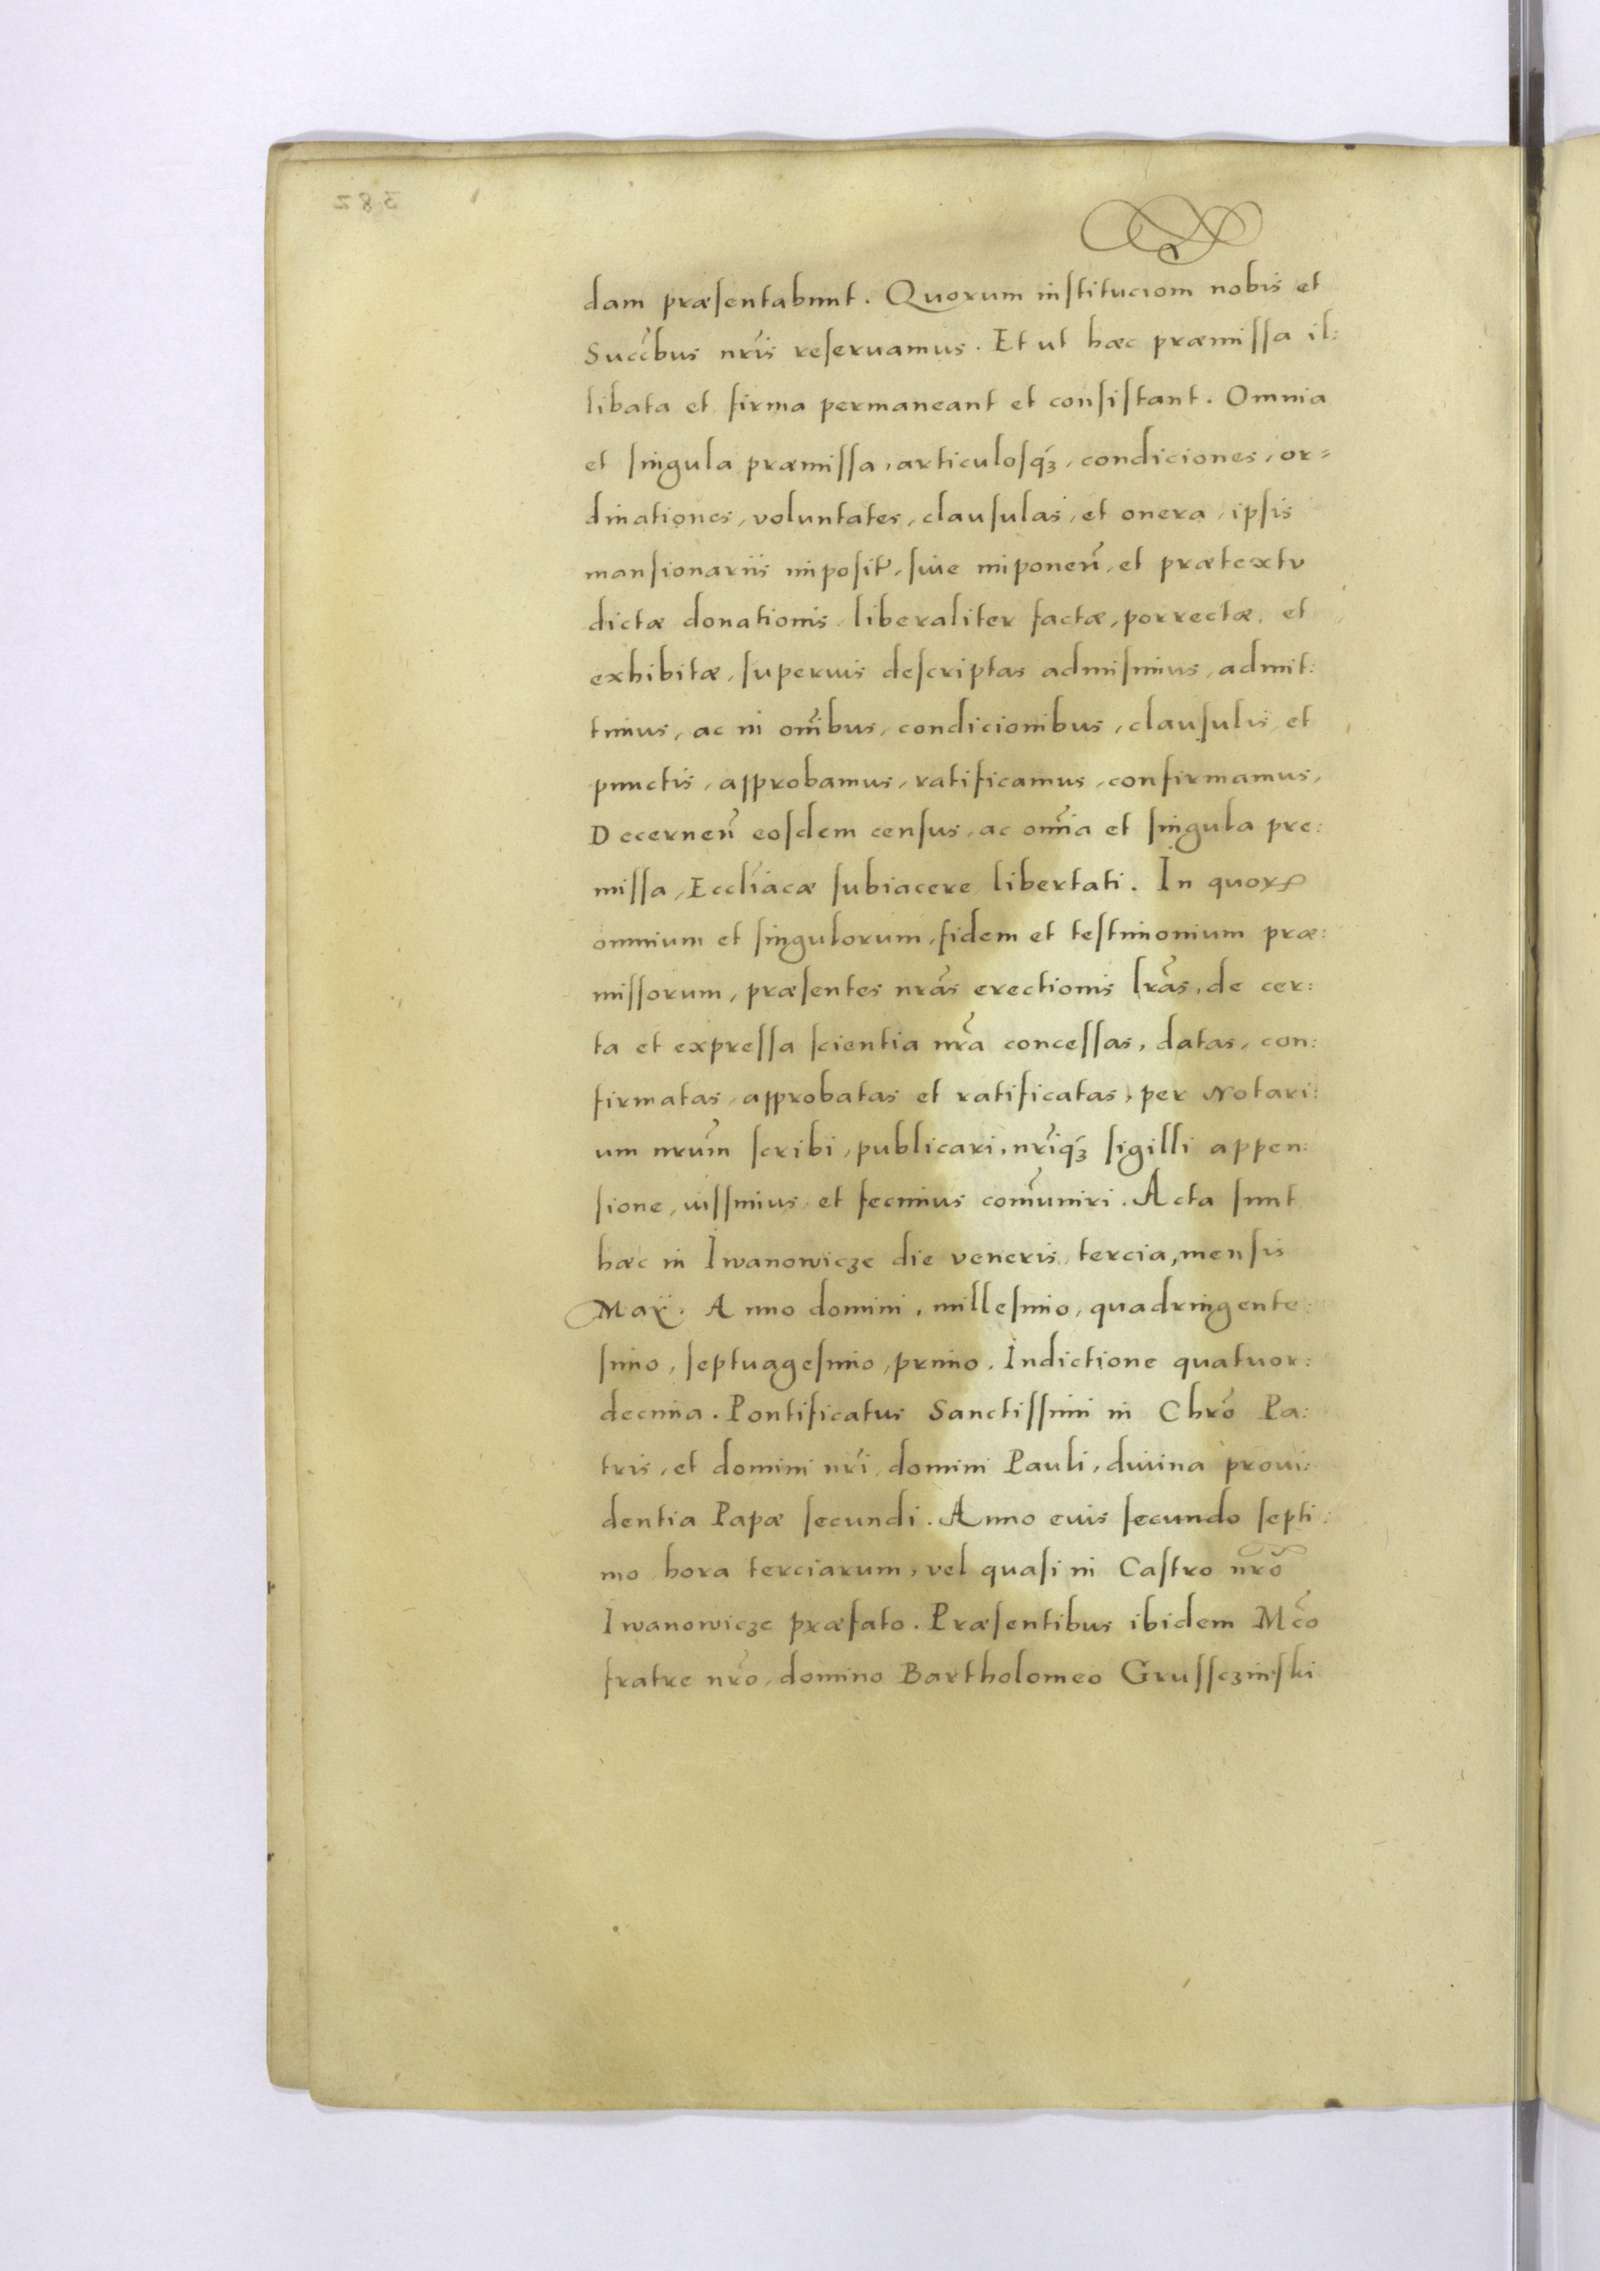 dam præſentabunt. Quorum inſtitucionem nobis et
Succ̃bus nr̃is reſeruamus. Et ut hæc præmiſſa il:
libata et firma permaneant et conſiſtant. Omnia
et ſingula præmiſſa, articuloſqꝫ, condiciones, or=
dinationes, voluntates, clauſulas, et onera, ipſis
manſionariis impoſit̃, ſiue imponeñ, et prætextu
dictæ donationis liberaliter factæ, porrectæ, et
exhibitæ, ſuperius deſcriptas admiſimus, admit:
timus, ac in om̃ibus, condicionibus, clauſulis, et
punctis, approbamus, ratificamus, confirmamus,
Decerneñ eoſdem cenſus, ac om̃ia et ſingula pre:
miſſa, Eccl̃iacæ ſubiacere libertati. In quoꝝ
omnium et ſingulorum, fidem et teſtimonium præ:
miſſorum, præſentes nr̃as erectionis lr̃as, de cer:
ta et expreſſa ſcientia nr̃a conceſſas, datas, con:
firmatas, approbatas et ratificatas, per Notari:
um nr̃um ſcribi, publicari, nr̃iqꝫ ſigilli appen:
ſione, iuſſimus et fecimus com̃uniri. Acta ſunt
hæc in Iwanowicze die veneris, tercia, menſis
Maÿ. Anno domini, milleſimo, quadringente:
ſimo, ſeptuageſimo, primo. Indictione quatuor:
decima. Pontificatus Sanctiſſimi in Chr̃o Pa:
tris, et domini nr̃i, domini Pauli, diuina proui:
dentia Papæ ſecundi. Anno eius ſecundo ſepti:
mo hora terciarum, vel quaſi in Caſtro nr̃o
Iwanowicze præfato. Præſentibus ibidem Mc̃o
fratre nr̃o, domino Bartholomeo Gruſſczinſki
382